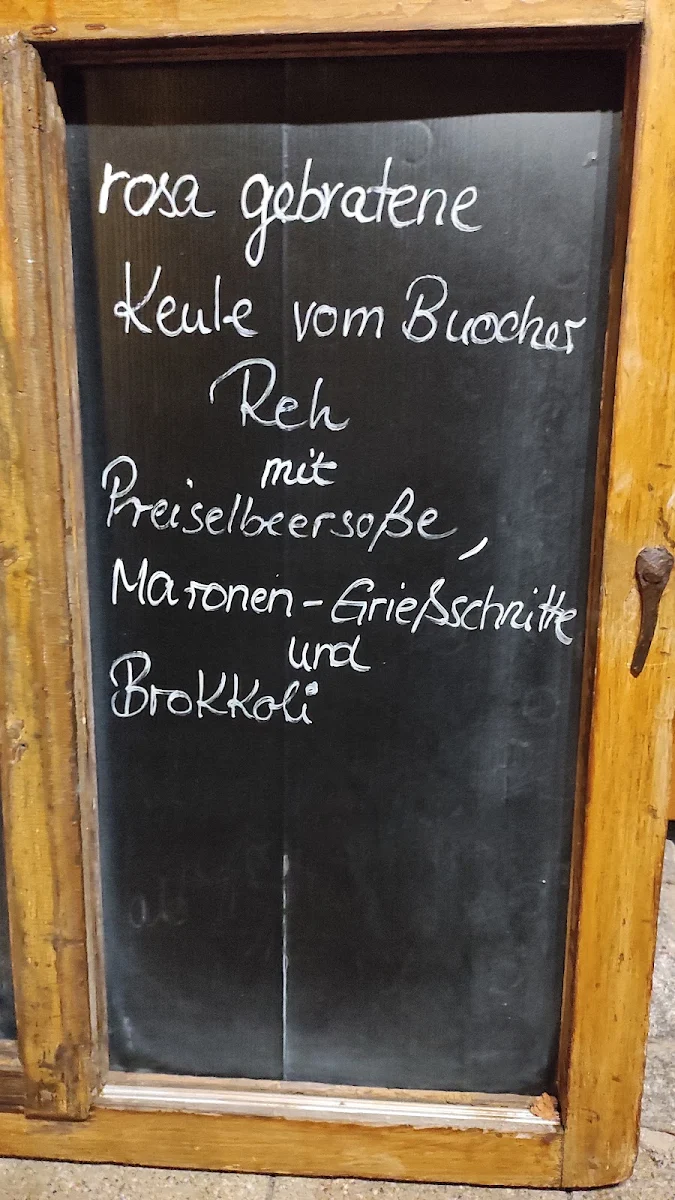 rosa gebratene
Keule vom Buocher
Reh
mit
Preiselbeersoße,
Maronen-Grießschnitte
und
Brokkoli